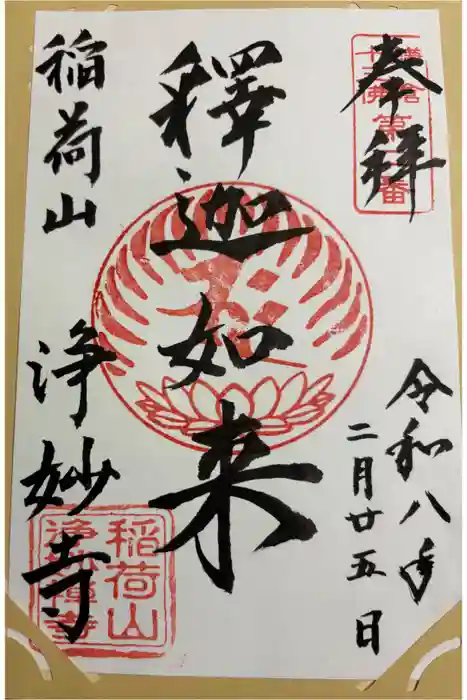 奉拝
鎌倉
十三佛
第二番
釋迦如来
令和八年
二月廿五日
稲荷山
浄妙寺
稲荷山